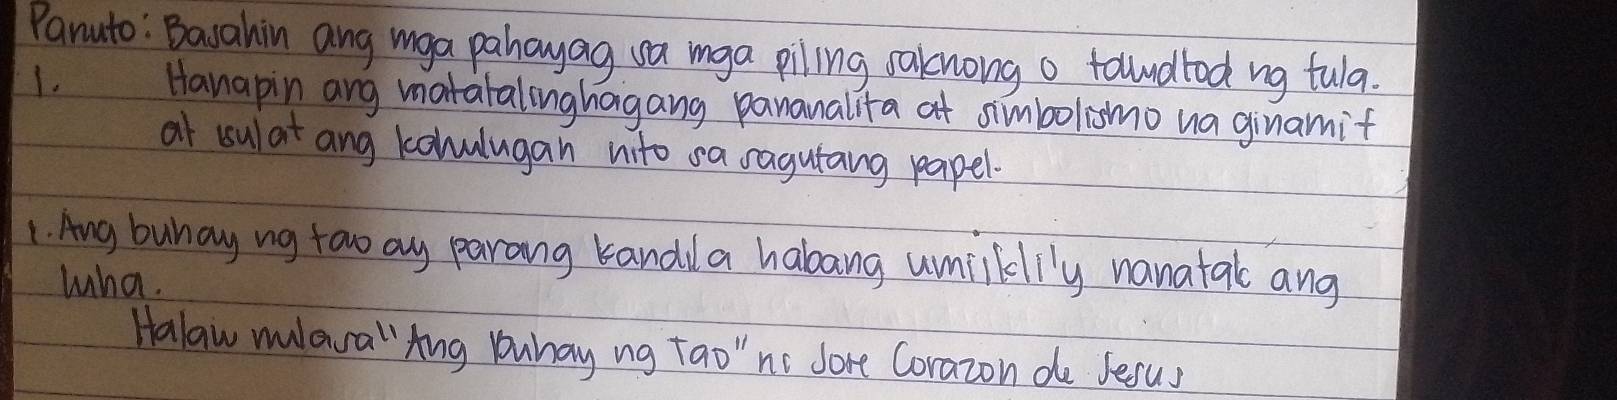 Panuto: Basahin ang mga pahayag sa mga piling saknong o taludtod ng tula.
1. Hanapin ang matatalinghagang pananalita at simbolismo na ginamit
at isulat ang kahulugan nito sa sagutang papel.
1. Ang buhay ng tao ay parang kandila habang umiikli'y nanatak ang
luha.
Halaw mulasa "Ang buhay ng Tao" ni Jose Corazon de Jesus